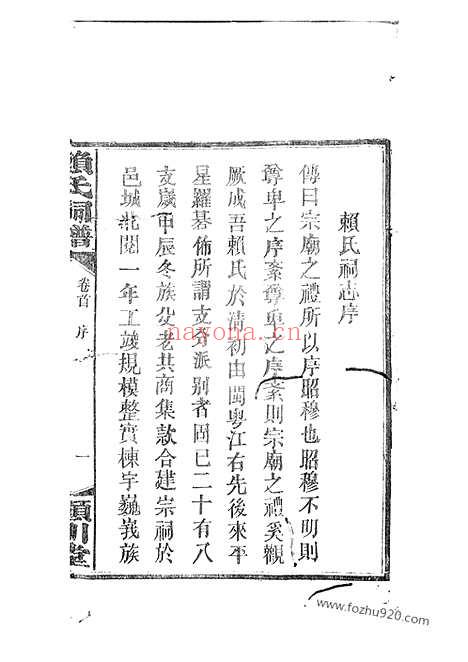 賴氏祠志序
傳曰宗廟之禮所以序昭穆也昭穆不明則
尊卑之序紊尊卑之序紊則宗廟之禮奚觀
厥成吾賴氏於清初由閩粵江右先後來平
星羅碁佈所謂支分派別者固已二十有八
支歲甲辰冬族父老共商集款合建宗祠於
邑城北閱一年工竣規模整實棟宇巍峩族
賴氏祠譜
卷首
序
一
潁川堂
nayona.cn
www.fozhu920.com